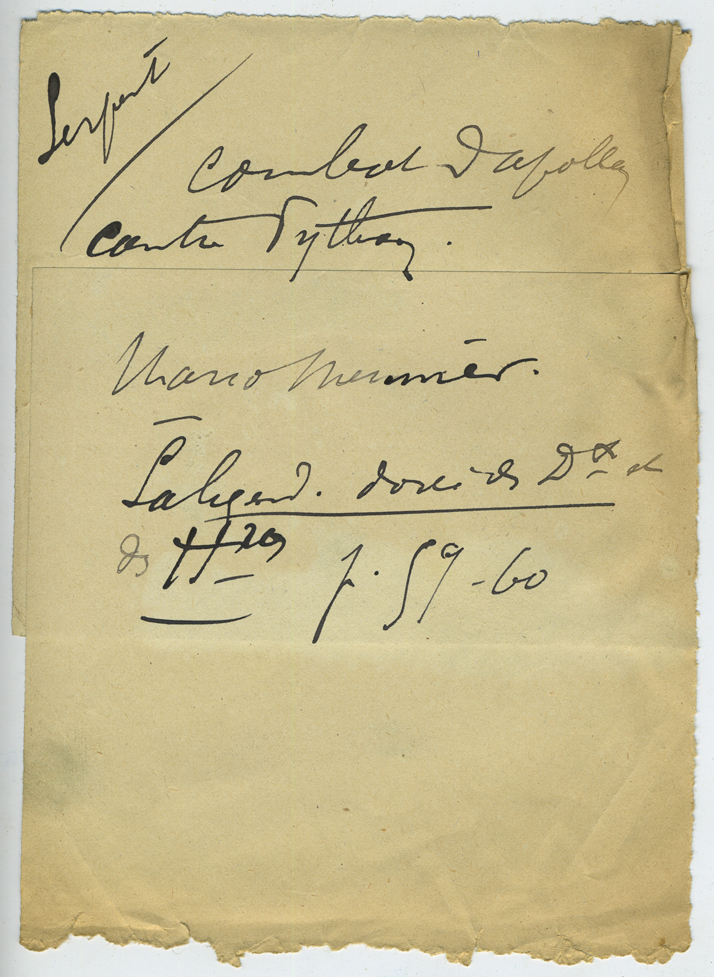 Serpent
Combat d'Apollon
contre Python.
Mario Meunier.
La légend. dorée des Dx et
des Hros
p. 59-60